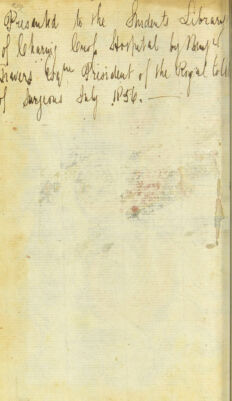 Presented to the Students Library
of Charing Cross Hospital by Benjn
Travers Esqre President of the Royal Coll
of Surgeons July 1856.